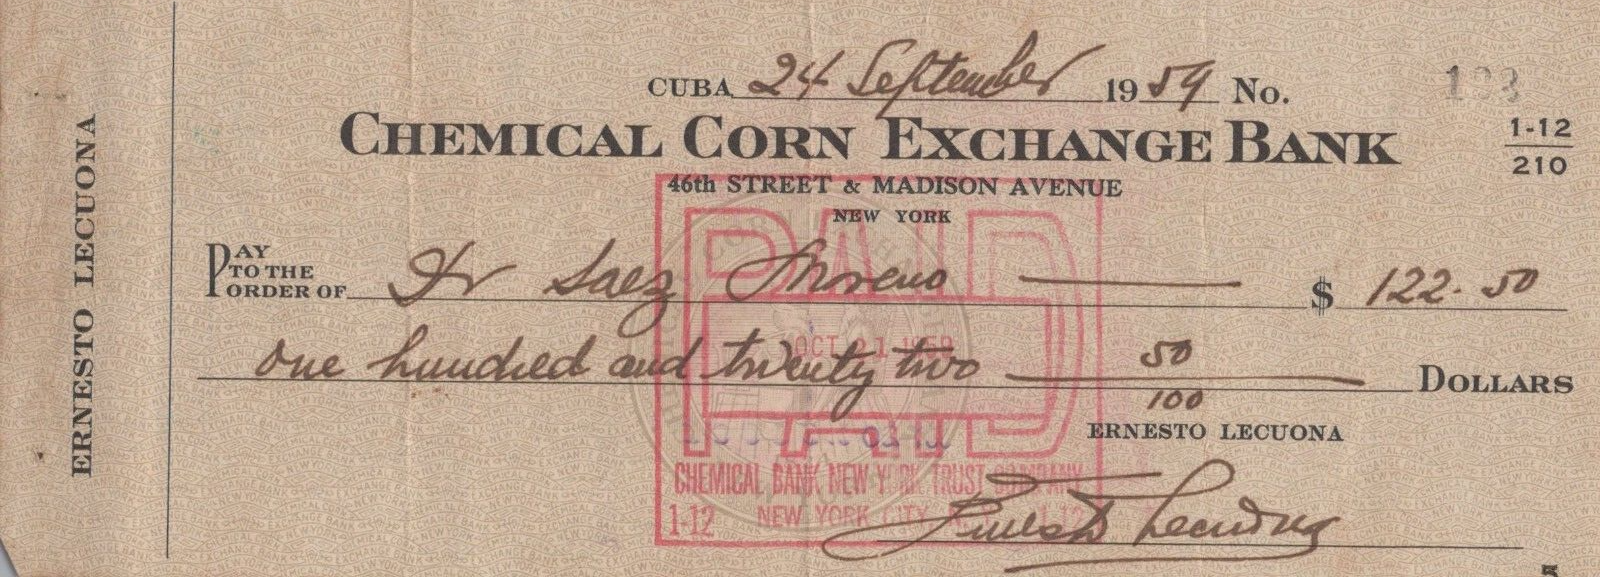 ERNESTO LECUONA
CUBA 24 September 1959 No. 133
CHEMICAL CORN EXCHANGE BANK
1-12
210
46th STREET & MADISON AVENUE
NEW YORK
PAY TO THE ORDER OF Dr Saez Moreno $ 122.50
one hundred and twenty two 50/100 DOLLARS
ERNESTO LECUONA
Ernesto Lecuona
PAID
OCT 21 1959
CHEMICAL BANK NEW YORK TRUST COMPANY
1-12 NEW YORK CITY 1-12
5